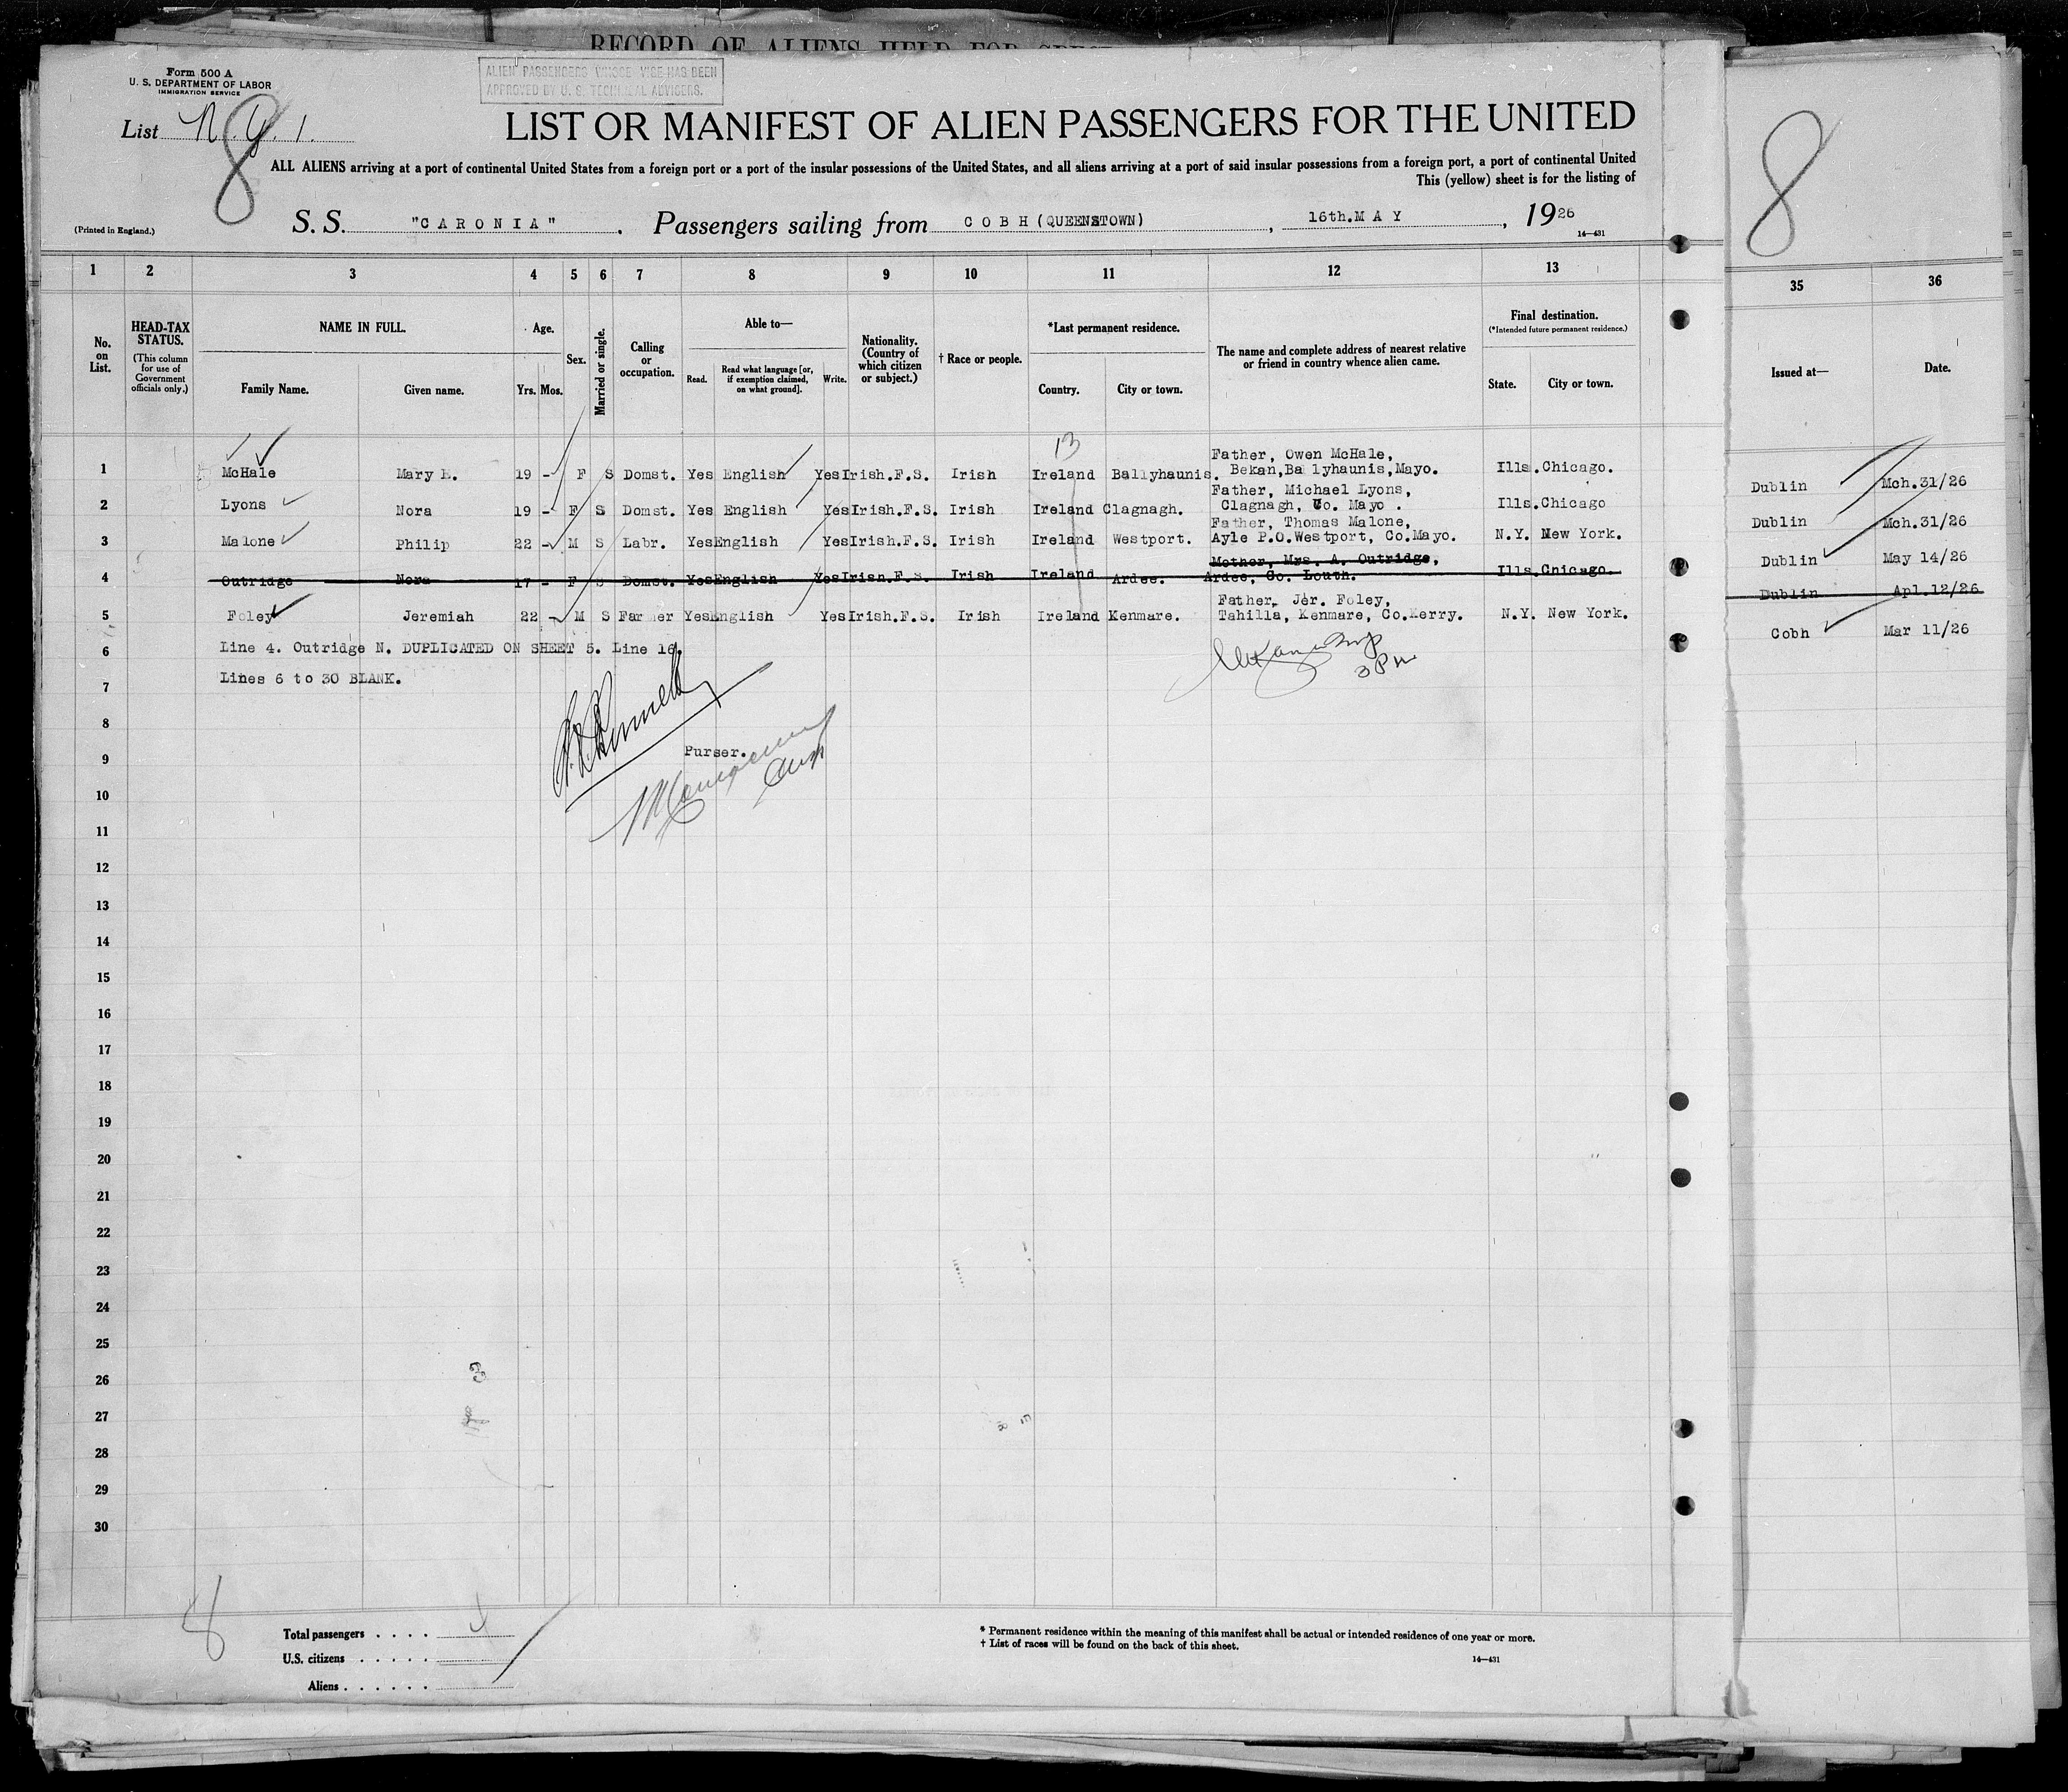 RECORD OF ALIENS HELD FOR
Form 500 A
U. S. DEPARTMENT OF LABOR
IMMIGRATION SERVICE
ALIEN PASSENGERS WHOSE VISE HAS BEEN
APPROVED BY U. S. TECHNICAL ADVISERS.
List N. Y. 1.
8
LIST OR MANIFEST OF ALIEN PASSENGERS FOR THE UNITED
ALL ALIENS arriving at a port of continental United States from a foreign port or a port of the insular possessions of the United States, and all aliens arriving at a port of said insular possessions from a foreign port, a port of continental United
This (yellow) sheet is for the listing of
(Printed in England.)
S. S. "CARONIA". Passengers sailing from COBH (QUEENSTOWN), 16th.MAY, 1926
14—431
8
1 2 3 4 5 6 7 8 9 10 11 12 13 35 36
No. on List.
HEAD-TAX STATUS.
(This column for use of Government officials only.)
NAME IN FULL.
Family Name. Given name.
Age.
Yrs. Mos.
Sex.
Married or single.
Calling or occupation.
Able to—
Read. Read what language [or, if exemption claimed, on what ground]. Write.
Nationality. (Country of which citizen or subject.)
† Race or people.
*Last permanent residence.
Country. City or town.
The name and complete address of nearest relative or friend in country whence alien came.
Final destination.
(*Intended future permanent residence.)
State. City or town.
Issued at— Date.
13
Father, Owen McHale,
1 McHale Mary E. 19 - F S Domst. Yes English Yes Irish.F.S. Irish Ireland Ballyhaunis. Bekan,Ballyhaunis,Mayo. Ills.Chicago. Dublin Mch.31/26
Father, Michael Lyons,
2 Lyons Nora 19 - F S Domst. Yes English Yes Irish.F.S. Irish Ireland Clagnagh. Clagnagh, Co. Mayo . Ills.Chicago Dublin Mch.31/26
Father, Thomas Malone,
3 Malone Philip 22 - M S Labr. Yes English Yes Irish.F.S. Irish Ireland Westport. Ayle P.O.Westport, Co.Mayo. N.Y. New York. Dublin May 14/26
Mother, Mrs. A. Outridge,
4 Outridge Nora 17 - F S Domst. Yes English Yes Irish.F.S. Irish Ireland Ardee. Ardee, Co. Louth. Ills.Chicago. Dublin Apl.12/26
Father, Jer. Foley,
5 Foley Jeremiah 22 - M S Farmer Yes English Yes Irish.F.S. Irish Ireland Kenmare. Tahilla, Kenmare, Co.Kerry. N.Y. New York. Cobh Mar 11/26
6 Line 4. Outridge N. DUPLICATED ON SHEET 5. Line 16.
7 Lines 6 to 30 BLANK.
8
9 Purser.
10
11
12
13
14
15
16
17
18
19
20
21
22
23
24
25
26
27
28
29
30
3
8
Total passengers . . . .
U.S. citizens . . . . .
Aliens . . . . . .
* Permanent residence within the meaning of this manifest shall be actual or intended residence of one year or more.
† List of races will be found on the back of this sheet.
14—431